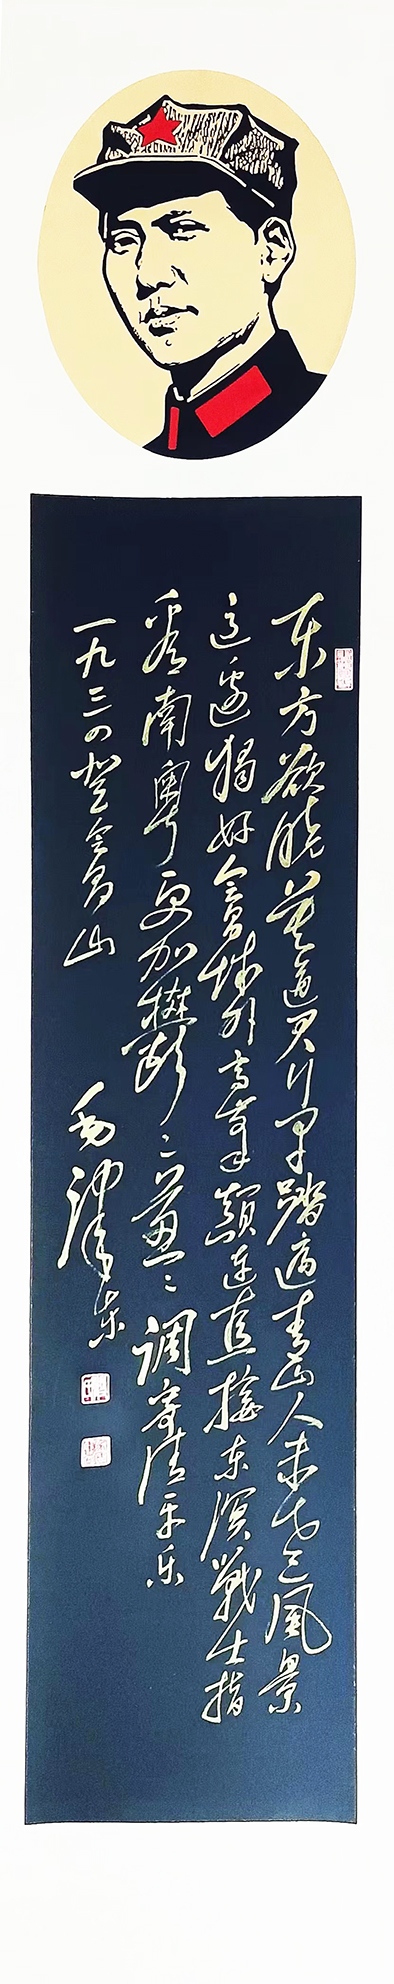 东方欲晓莫道君行早踏遍青山人未老风景
这边獨好會昌城外高峯顛连直接东溟戰士指
看南粤更加鬱々葱々调寄清平乐
一九三四登会昌山 毛泽东